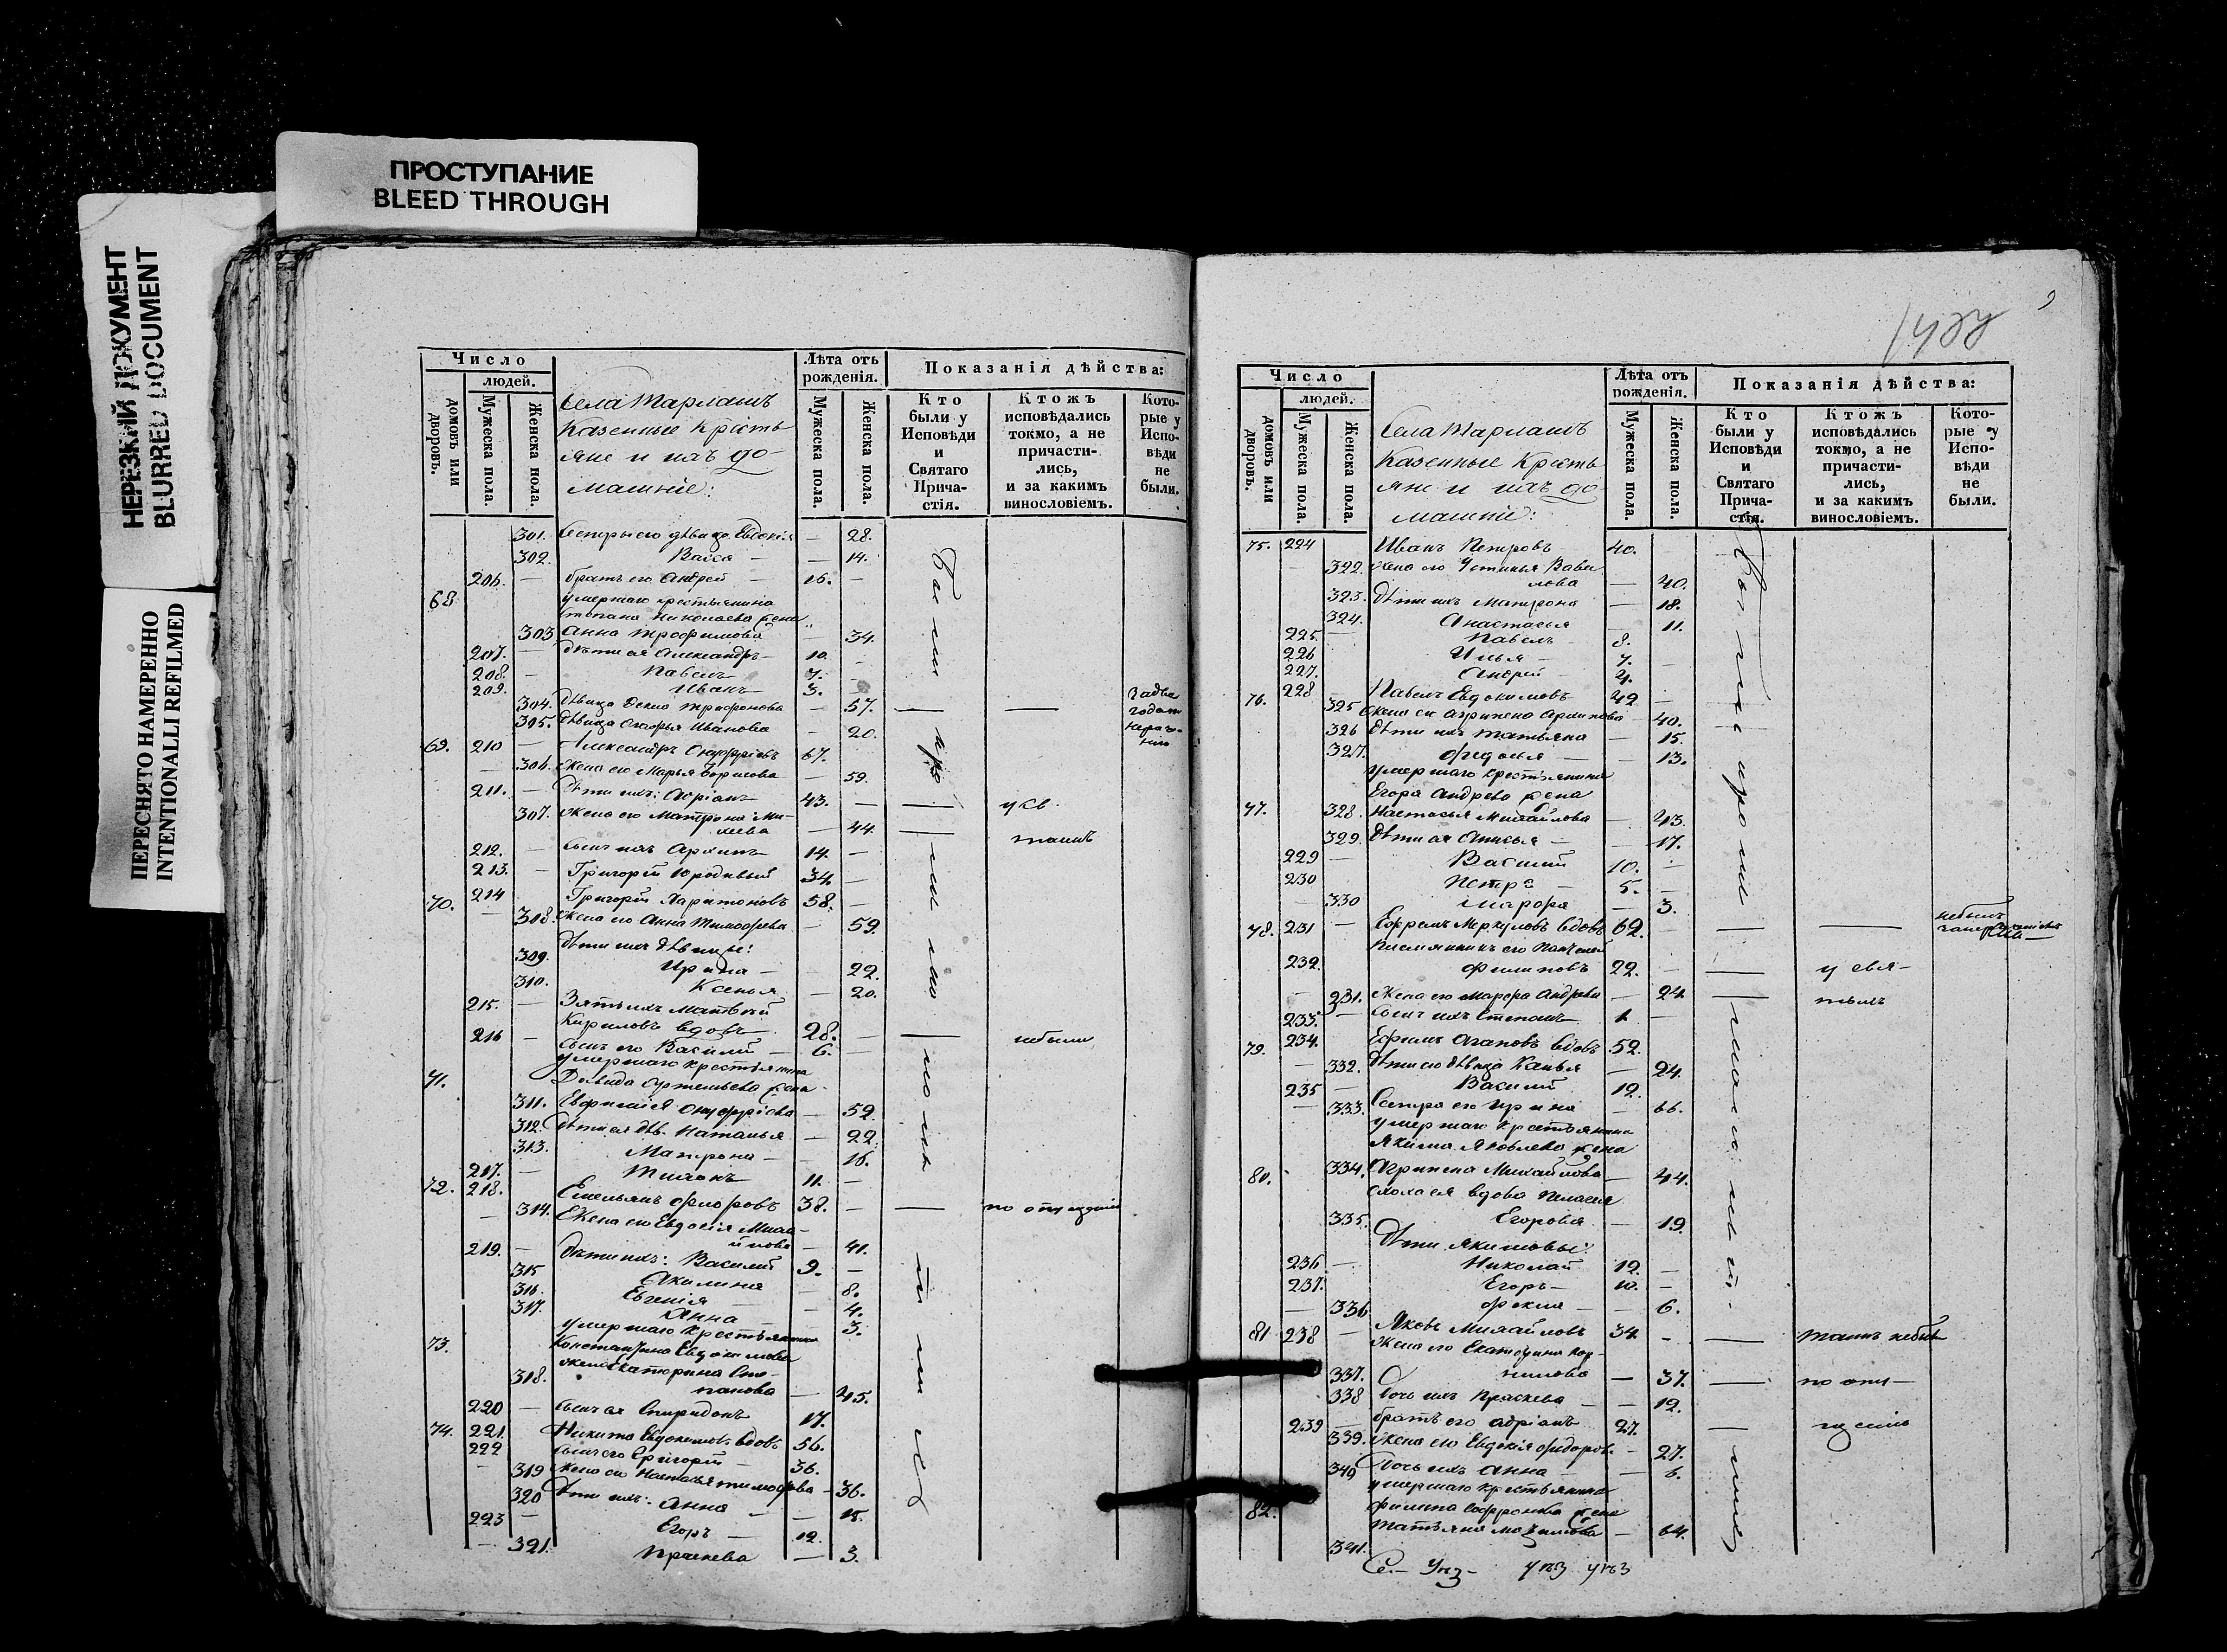 ПРОСТУПАНИЕ
BLEED THROUGH
НЕРЕЗКИЙ ДОКУМЕНТ
BLURRED DOCUMENT
ПЕРЕСНЯТО НАМЕРЕННО
INTENTIONALLI REFILMED
Число
людей.
домовъ или дворовъ.
Мужеска пола.
Женска пола.
Села Тарлашъ
Казенные Крестъ
яне и ихъ до-
машніе:
Лѣта отъ рожденія.
Мужеска пола.
Женска пола.
Показанія дѣйства:
Кто были у Исповѣди и Святаго Прича-стія.
Ктожъ исповѣдались токмо, а не причасти-лись, и за какимъ винословіемъ.
Кото-рые у Испо-вѣди не были.
301. Сестры его дѣвица Евдокія — 28.
302. Васса — — 14.
206. — братъ его Андрей — 16. —
68 умершаго крестьянина
Николаева жена
303 Анна Трофимова — 34.
207. — дѣти ея Александръ — 10. —
208. — Павелъ 7. —
209. Иванъ — 3. —
304. Дѣвица Трифонова — 57. — —
305. Дѣвица Иванова — 20.
69. 210 — Александръ Онуфріевъ 67.
306. Жена его Марья Борисова — 59.
211. — Дѣти ихъ: Адріанъ 43. —
307. Жена его Матрона Ми-
— 44.
212. — Сынъ ихъ Архипъ 14. —
213. — Григорій 34. —
70. 214 — Григорій Харитоновъ 58. —
308. Жена его Анна Тимофеева — 59.
309. Дѣти ихъ дѣвицы:
Ирина — — 22.
310. Ксенья — 20.
215. — Зять ихъ Матвѣй
Кириловъ вдовъ 28. — небыли
216 — Сынъ его Василій — 6.
умершаго крестьянина
71. Давида Артемьева жена
311. Евфимія Онуфріева — 52.
312. Дѣти ея дѣв. Наталья — 22.
313. Матрона — — 16.
217. — 11. —
72. 218. Емельянъ 38. — —
314. Жена его Евдокія Миха-
йлова — 41.
219. — Дѣти ихъ: Василій 9. —
315 Акилина — 8.
316. Евгенія — — 4.
317. Анна — — 3.
умершаго крестьянина
73. Константина Евдокимова
318. жена Екатерина Сте-
панова — 45.
220 — Сынъ ея Спиридонъ 17.
74. 221. Никита Евдокимовъ вдовъ 56.
222 Сынъ его Григорій — 36.
319 Жена его Настасья Тимофеева — 36.
320 Дѣти ихъ: Анна — — 15.
223 — Егоръ — 12.
— 321. Прасковья — 3.
Число
людей.
домовъ или дворовъ.
Мужеска пола.
Женска пола.
Села Тарлашъ
Казенные Крестъ
яне и ихъ до-
машніе:
Лѣта отъ рожденія.
Мужеска пола.
Женска пола.
Показанія дѣйства:
Кто были у Исповѣди и Святаго Прича-стія.
Ктожъ исповѣдались токмо, а не причасти-лись, и за какимъ винословіемъ.
Кото-рые у Испо-вѣди не были.
75. 224 Иванъ Петровъ 40.
— 322. Жена его Устинья Вави
лова — 40.
323. Дѣти ихъ Матрона — 18.
324. Анастасья — 11.
225. — Павелъ 8.
226 Илья — 7. —
227. Андрей — 4.
76. 228 — Павелъ Евдокимовъ 42 —
325 Жена его Агрипена — 40.
326 Дѣти ихъ Татьяна — 15.
327. Федосья — — 13.
умершаго крестьянина
Егора Андреева жена
77. 328. Настасья Михайлова — 43.
329. Дѣти ея Анисья — — 17.
229 — Василій 10. —
230 Петръ — 5. —
330 Марфа — 3.
78. 231 — Ефремъ Меркуловъ вдовъ 62. — — —
Племянникъ его
232. Филиповъ 22. —
231. Жена его Марфа Андреева — 24.
233. — Сынъ ихъ Степанъ 1. —
79. 234. Ефимъ Агаповъ вдовъ 52.
— 332. Дѣти его дѣвица Ксенья — 24.
235 — Василій 12.
— 333. Сестра его Ирина — 66.
умершаго крестьянина
Якима Яковлева жена
80. 334. Агрипена Михайлова — 44.
Сноха ея вдова Пелагея
335. Егорова — 19.
Дѣти Якимовы:
236. — Николай 12. —
237. Егоръ — 10. —
— 336 Фекла — — 6.
81. 238 — Яковъ Михайловъ 34. — —
Жена его Екатерина Кор-
337. нилова — 37. —
338 Дочь ихъ Прасковья — — 12.
239 — братъ его Адріанъ 27.
339. Жена его Евдокія Федорова — 27.
340 Дочь ихъ Анна — — 6.
умершаго крестьянина
82. Филипа Софронова жена
341. Татьяна — 64.